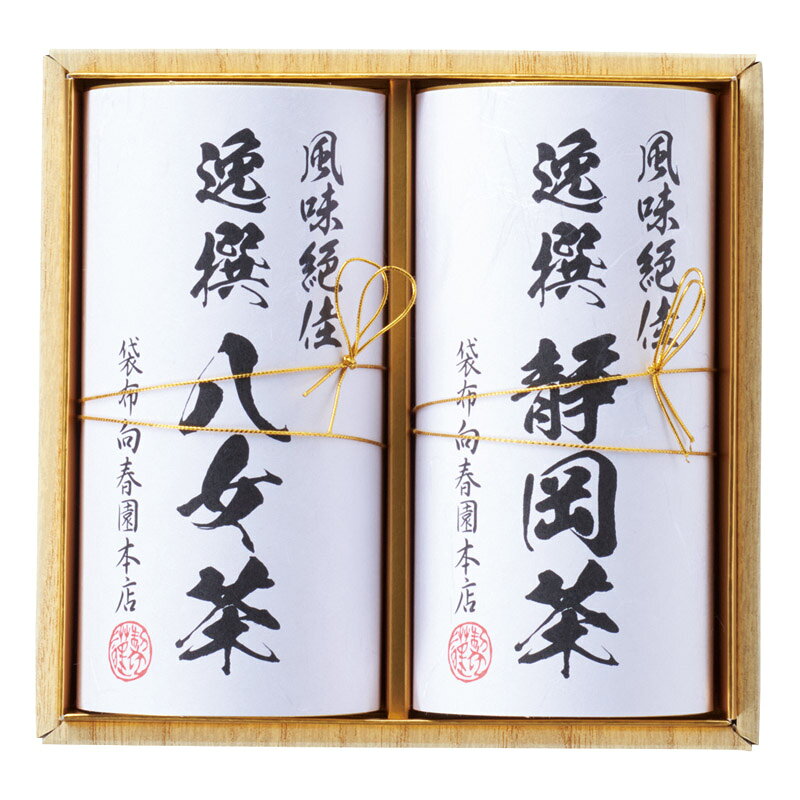 風味絶佳
逸撰
静岡茶
袋布向春園本店
風味絶佳
逸撰
八女茶
袋布向春園本店